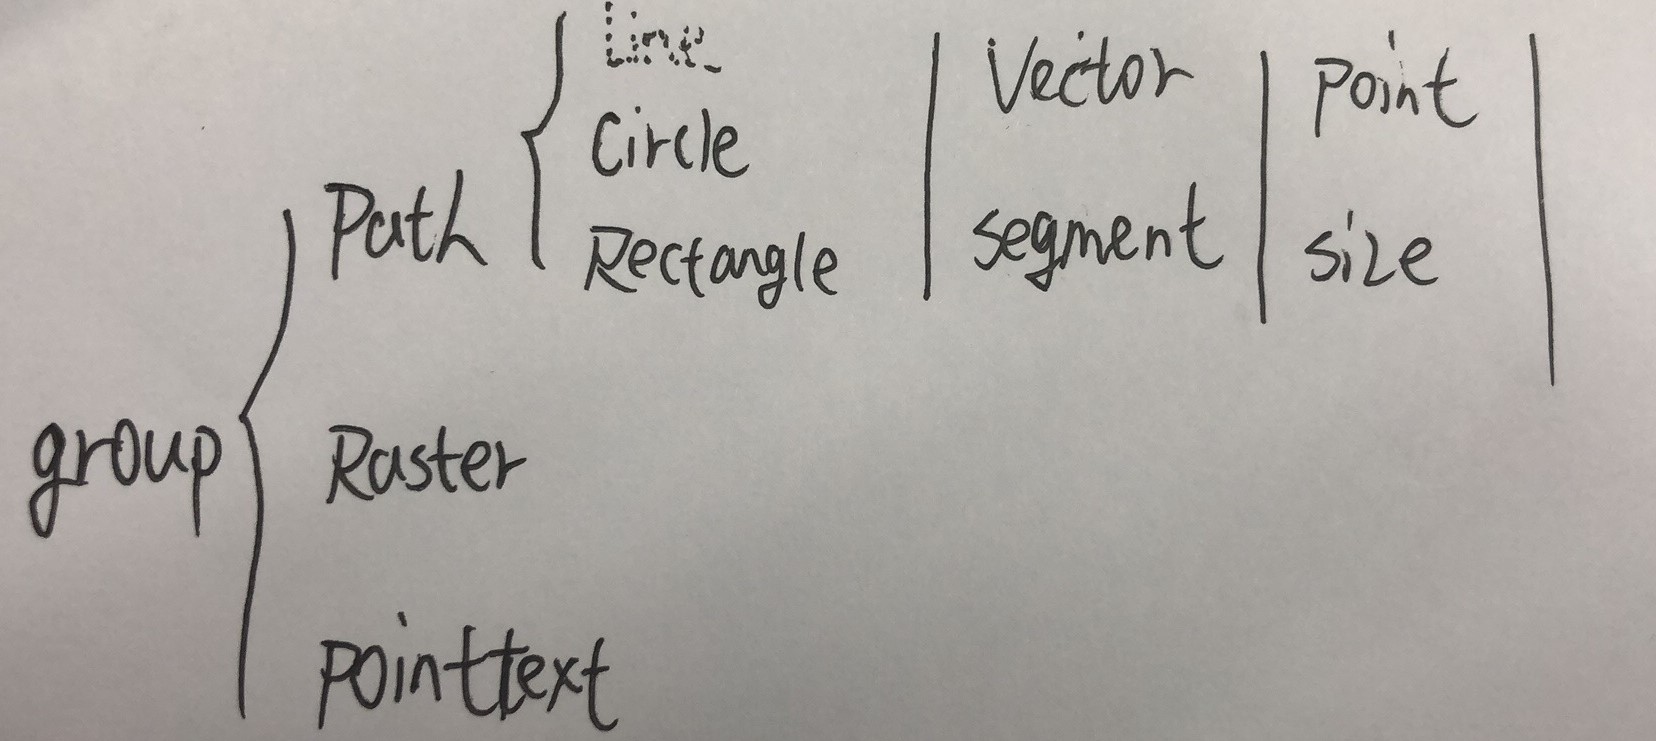 Line
Circle
Rectangle
Vector
segment
Point
size
Path
group
Raster
Pointtext